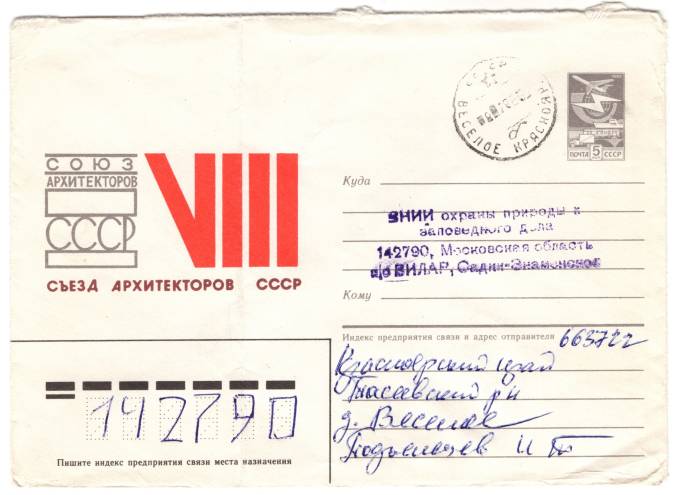 СОЮЗ
АРХИТЕКТОРОВ
СССР
VIII
СЪЕЗД АРХИТЕКТОРОВ СССР
ВЕСЕЛОЕ КРАСНОЯР
ПОЧТА 5 СССР
Куда
ВНИИ охраны природы и
заповедного дела
142790, Московская область
п/о ВИЛАР, Садки-Знаменское
Кому
Индекс предприятия связи и адрес отправителя 663722
Красноярский край
Тасеевский р-н
д. Веселое
И
142790
Пишите индекс предприятия связи места назначения